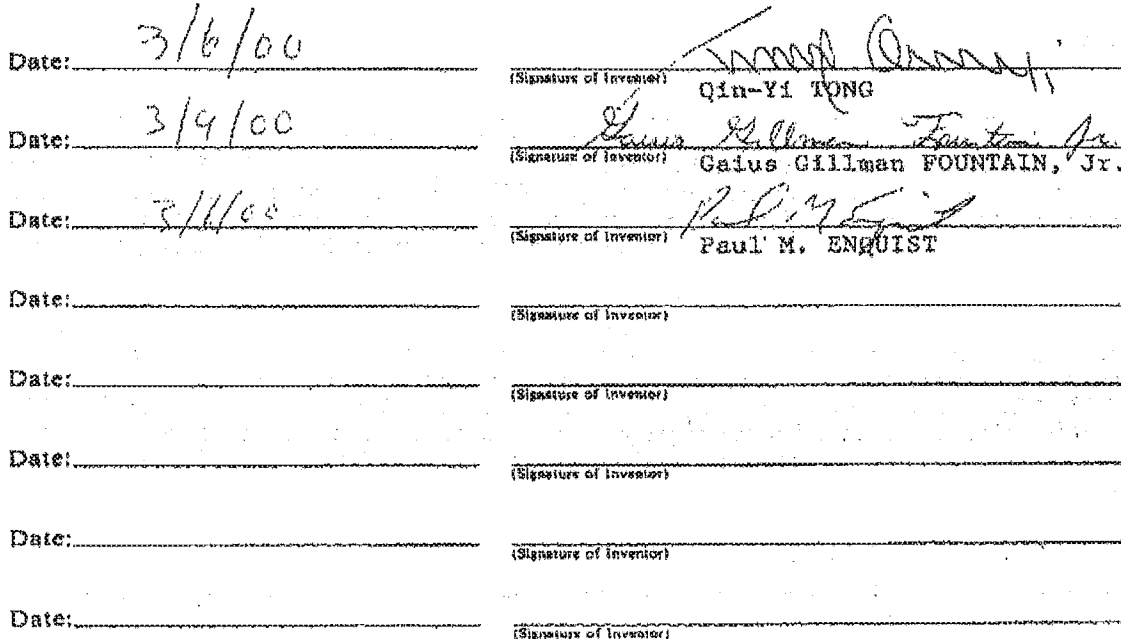 Date: 3/6/00
(Signature of Inventor)
Qin-Yi TONG
Date: 3/9/00 Gaius Gillman Fountain Jr.
(Signature of Inventor)
Gaius Gillman FOUNTAIN, Jr.
Date: 3/6/00 Paul M Enquist
(Signature of Inventor)
Paul M. ENQUIST
Date:
(Signature of Inventor)
Date:
(Signature of Inventor)
Date:
(Signature of Inventor)
Date:
(Signature of Inventor)
Date:
(Signature of Inventor)